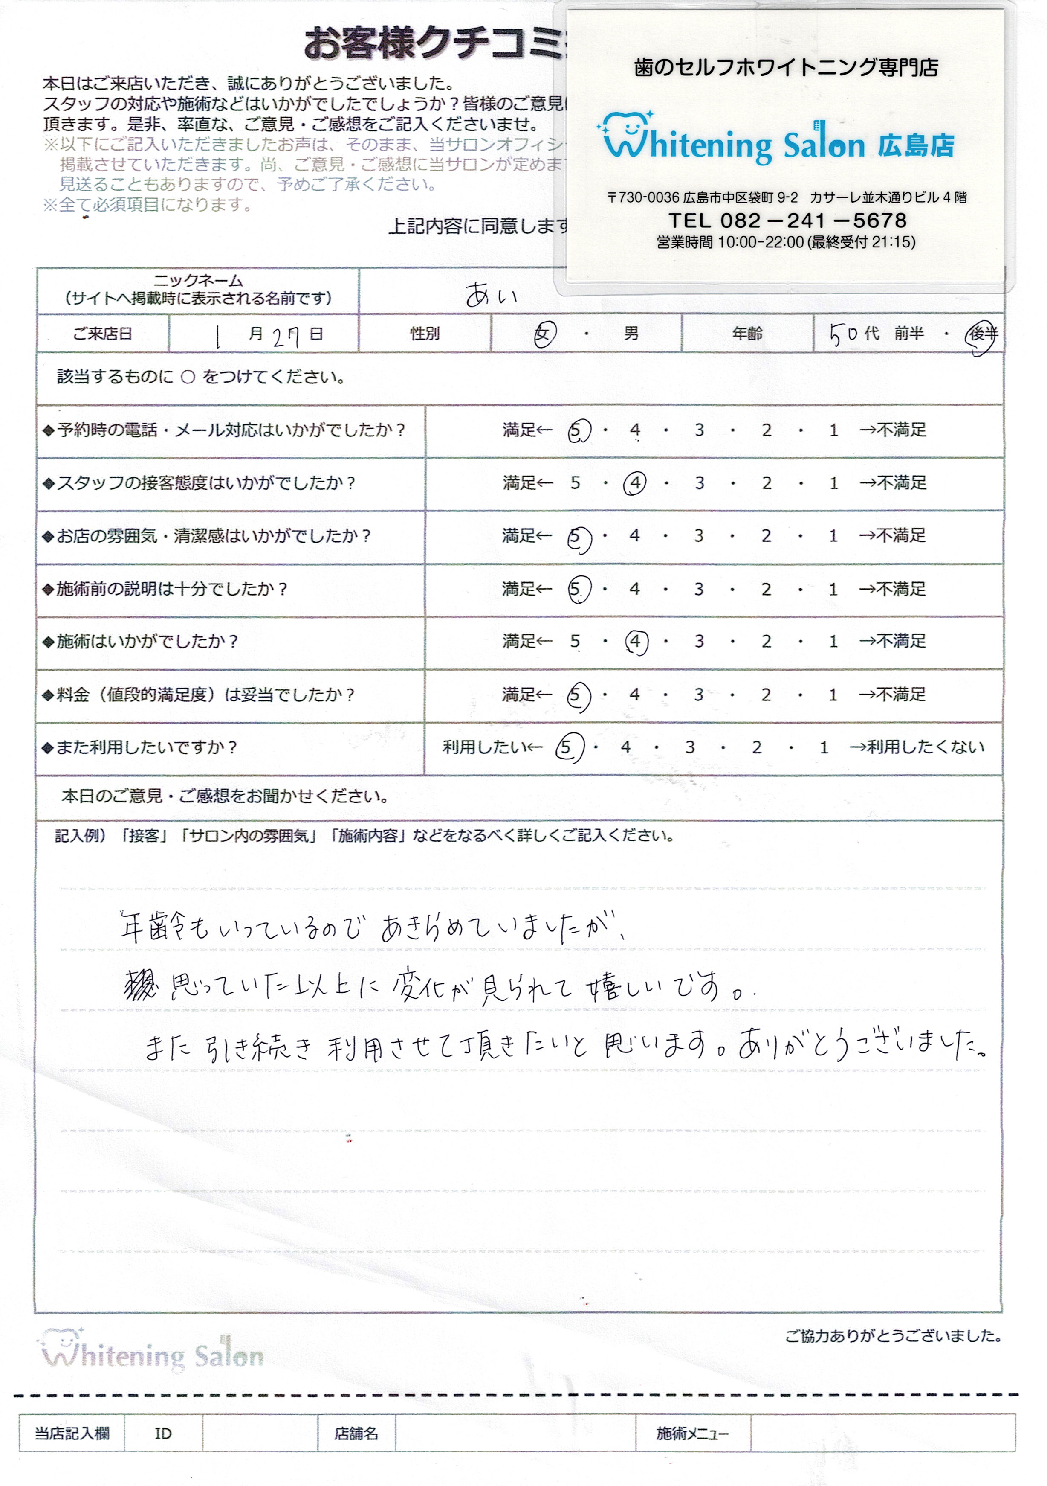 お客様クチコミ
本日はご来店いただき、誠にありがとうございました。
スタッフの対応や施術などはいかがでしたでしょうか？皆様のご意見
頂きます。是非、率直な、ご意見・ご感想をご記入くださいませ。
※以下にご記入いただきましたお声は、そのまま、当サロンオフィシ
掲載させていただきます。尚、ご意見・ご感想に当サロンが定めま
見送ることもありますので、予めご了承ください。
※全て必須項目になります。
上記内容に同意します
歯のセルフホワイトニング専門店
Whitening Salon 広島店
〒730-0036 広島市中区袋町 9-2 カサーレ並木通りビル 4 階
TEL 082－241－5678
営業時間 10:00-22:00 (最終受付 21:15)
ニックネーム
（サイトへ掲載時に表示される名前です） あい
ご来店日 1 月 27 日 性別 女 ・ 男 年齢 50 代 前半 ・ 後半
該当するものに ○ をつけてください。
◆予約時の電話・メール対応はいかがでしたか？ 満足← 5 ・ 4 ・ 3 ・ 2 ・ 1 →不満足
◆スタッフの接客態度はいかがでしたか？ 満足← 5 ・ 4 ・ 3 ・ 2 ・ 1 →不満足
◆お店の雰囲気・清潔感はいかがでしたか？ 満足← 5 ・ 4 ・ 3 ・ 2 ・ 1 →不満足
◆施術前の説明は十分でしたか？ 満足← 5 ・ 4 ・ 3 ・ 2 ・ 1 →不満足
◆施術はいかがでしたか？ 満足← 5 ・ 4 ・ 3 ・ 2 ・ 1 →不満足
◆料金（値段的満足度）は妥当でしたか？ 満足← 5 ・ 4 ・ 3 ・ 2 ・ 1 →不満足
◆また利用したいですか？ 利用したい← 5 ・ 4 ・ 3 ・ 2 ・ 1 →利用したくない
本日のご意見・ご感想をお聞かせください。
記入例）「接客」「サロン内の雰囲気」「施術内容」などをなるべく詳しくご記入ください。
年齢もいっているので あきらめていましたが、
思っていた以上に 変化が見られて 嬉しいです。
また 引き続き 利用させて頂きたいと 思います。ありがとうございました。
ご協力ありがとうございました。
Whitening Salon
当店記入欄 ID 店舗名 施術メニュー